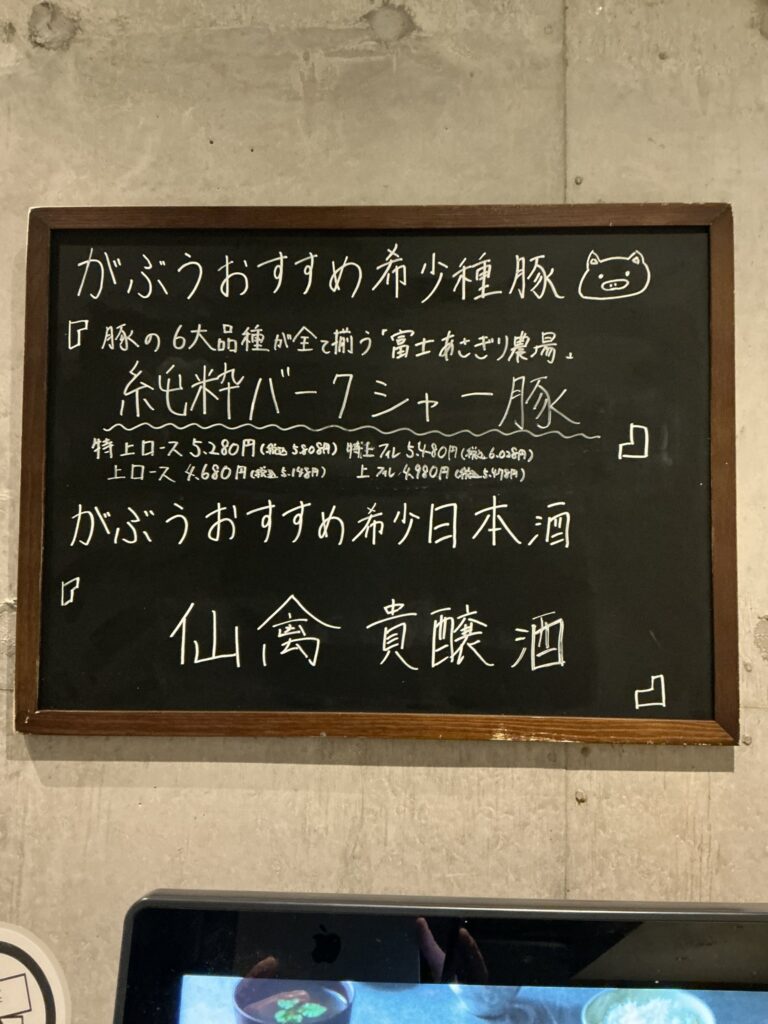 がぶうおすすめ希少種豚
『豚の6大品種が全て揃う「富士あさぎり農場」
純粋バークシャー豚』
特上ロース 5.280円(税込 5.808円) 特上フィレ 5.480円(税込 6.028円)
上ロース 4.680円(税込 5.148円) 上フィレ 4.980円(税込 5.478円)
がぶうおすすめ希少日本酒
『仙禽 貴醸酒』